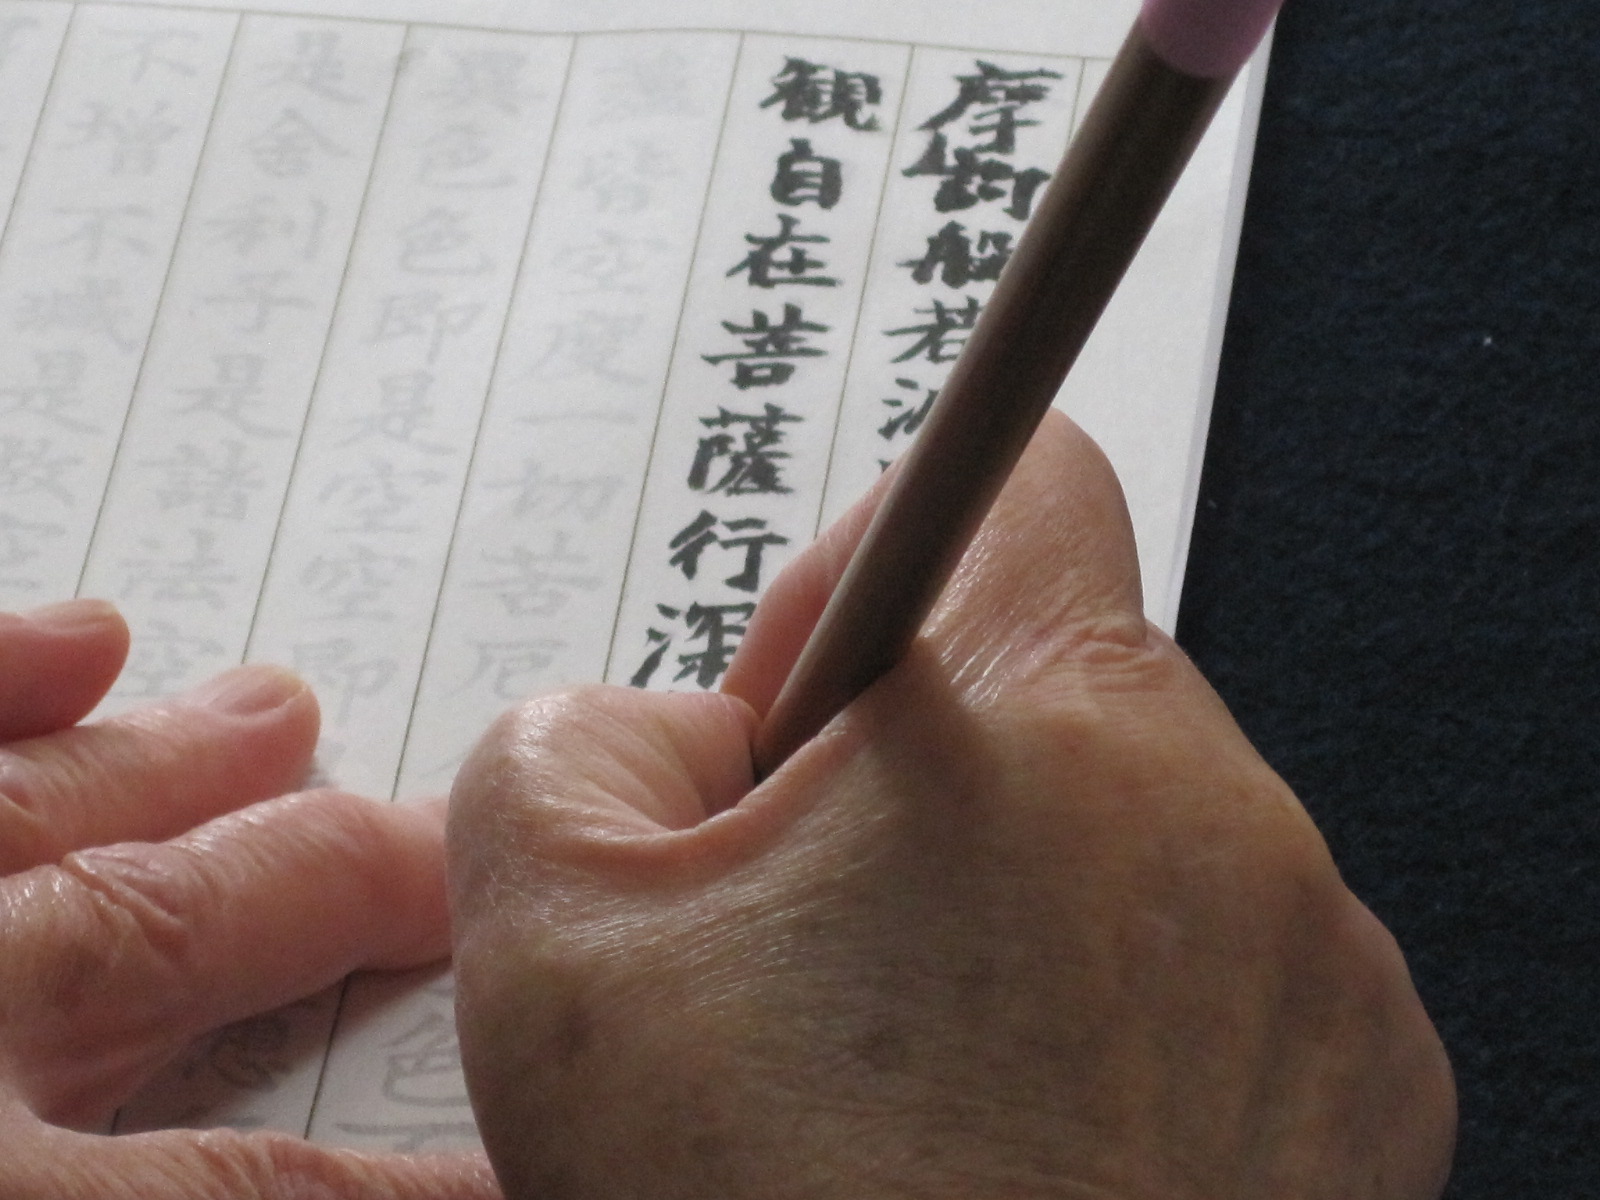 摩訶般若波
観自在菩薩行深
蘊皆空度一切苦厄
異色色即是空空即
色
是舍利子是諸法空
不増不減是